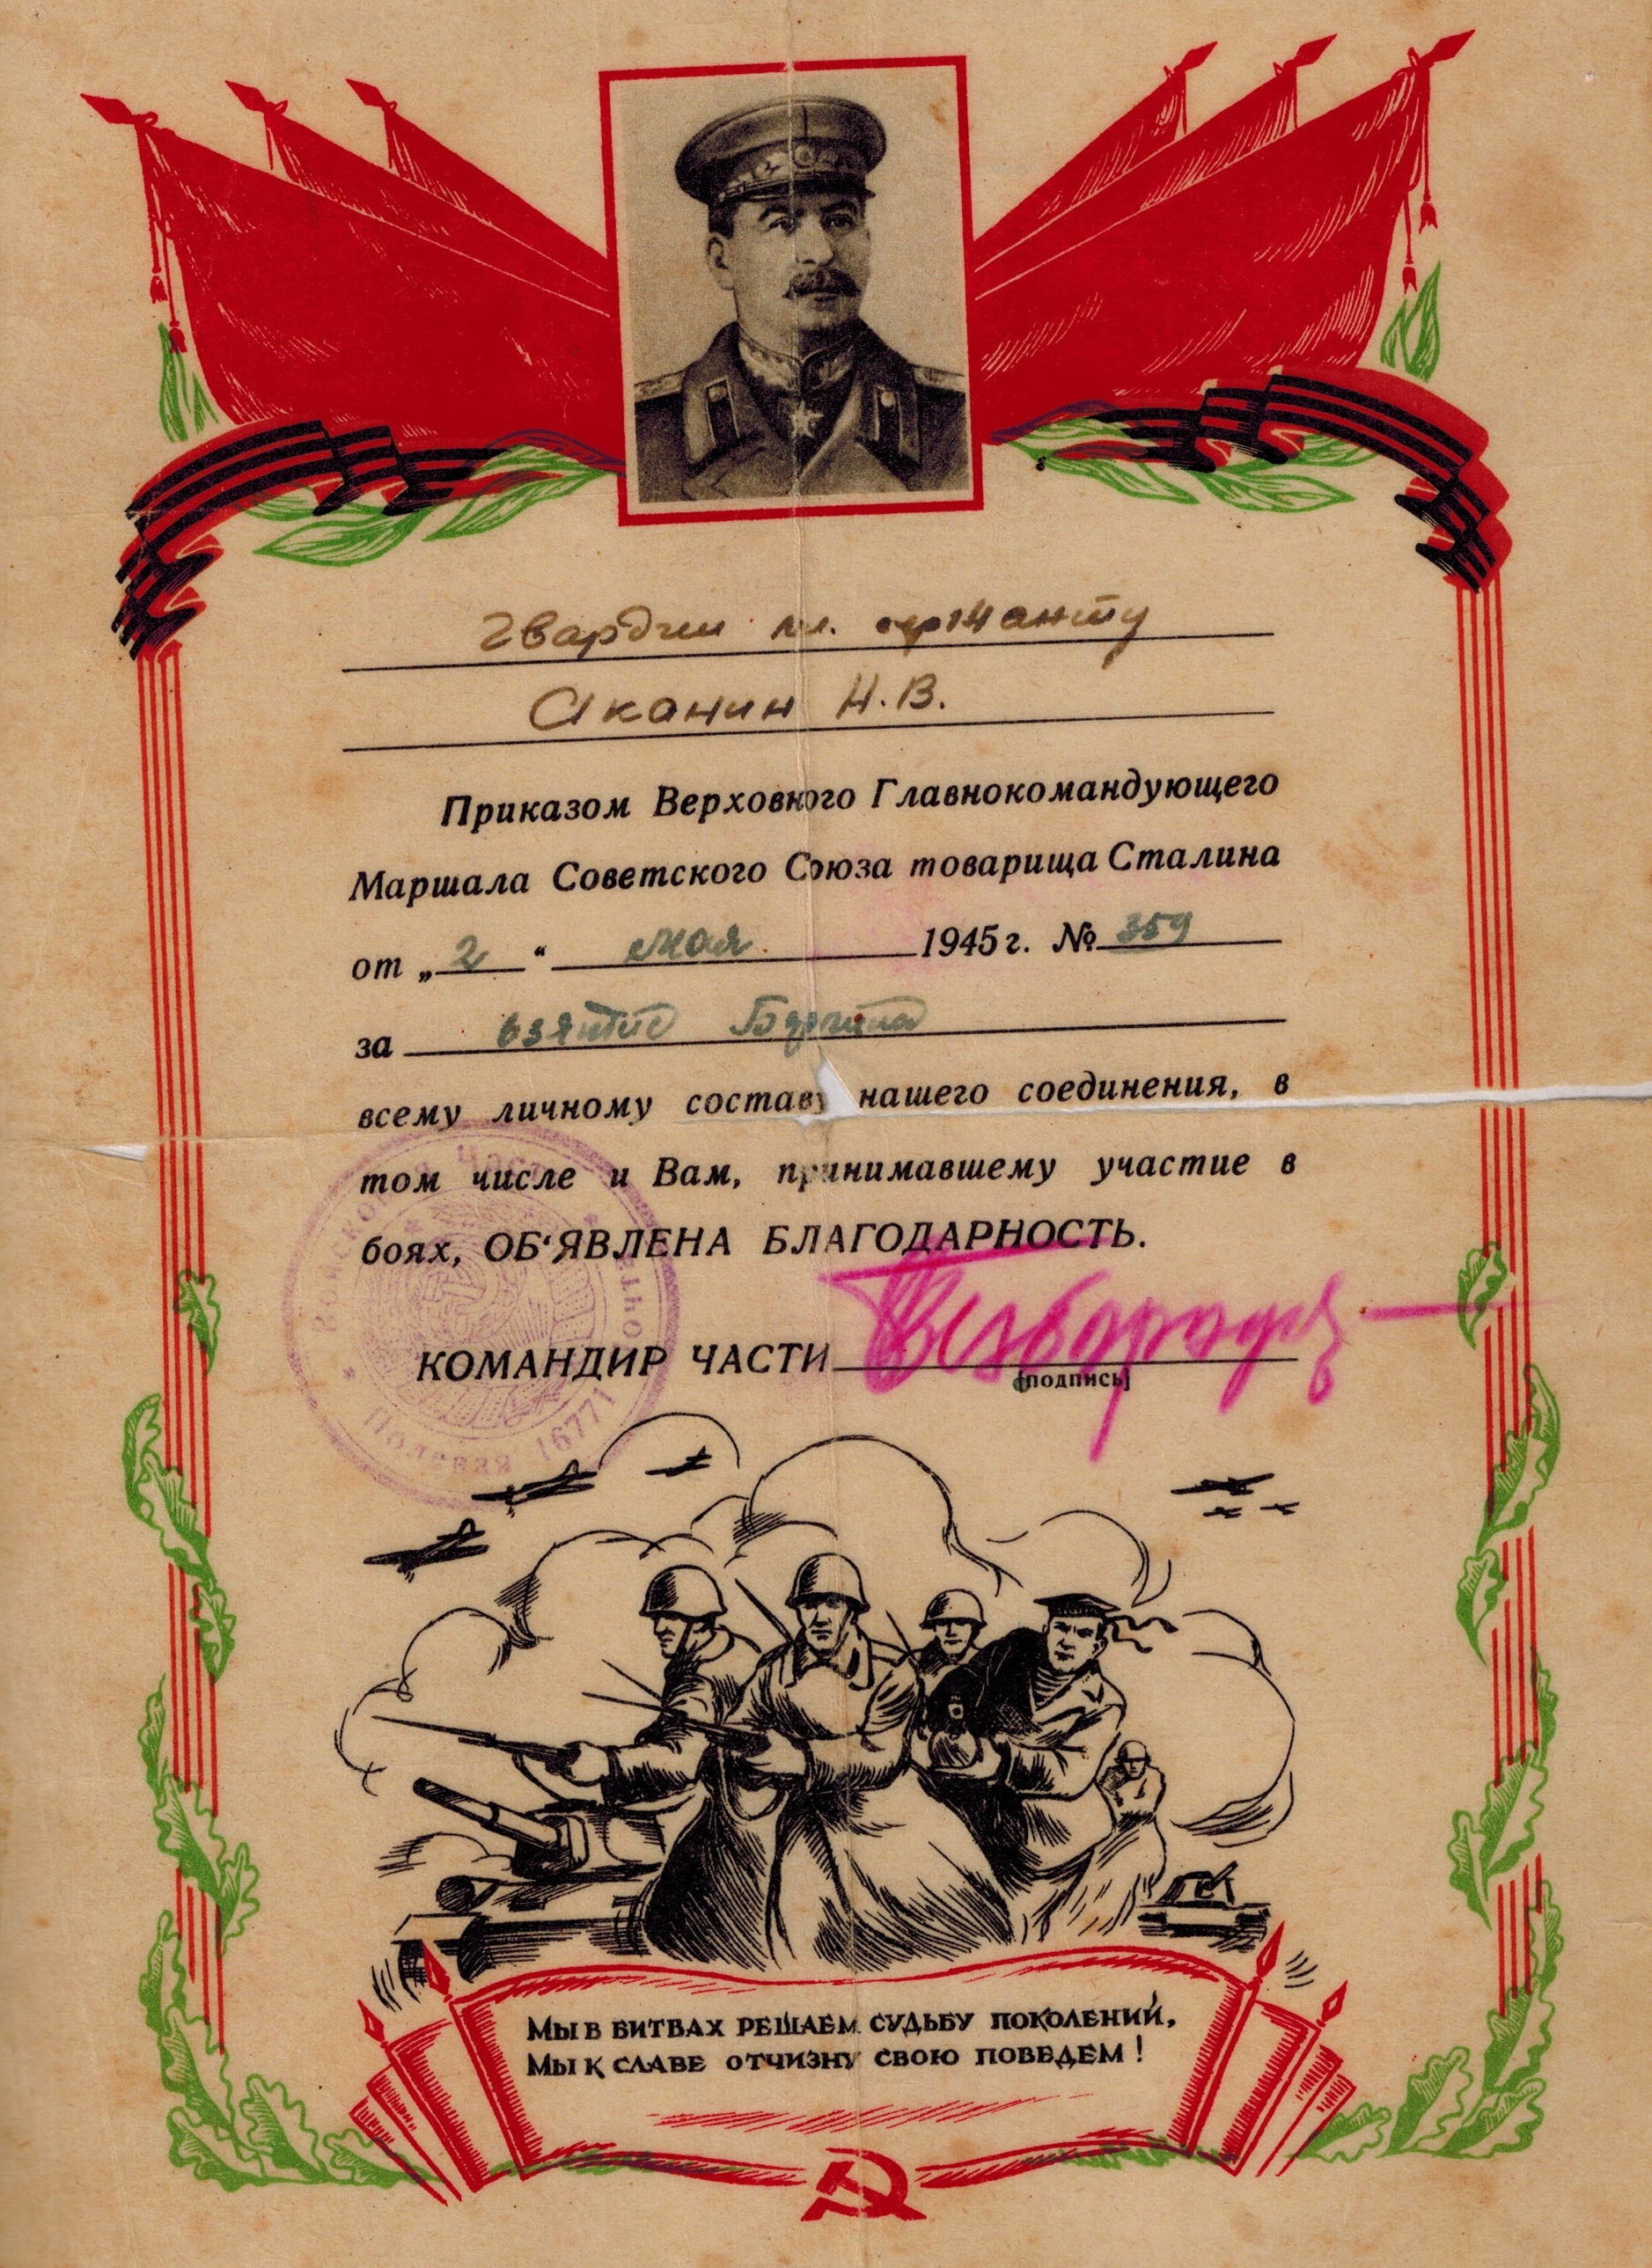 Гвардии мл. сержанту
Аканин Н.В.
Приказом Верховного Главнокомандующего
Маршала Советского Союза товарища Сталина
от „2“ мая 1945 г. № 359
за взятие Берлина
всему личному составу нашего соединения, в
том числе и Вам, принимавшему участие в
боях, ОБ‘ЯВЛЕНА БЛАГОДАРНОСТЬ.
КОМАНДИР ЧАСТИ
[подпись]
Войсковая часть
Полевая почта
16771
Мы в битвах решаем судьбу поколений,
Мы к славе отчизну свою поведем!